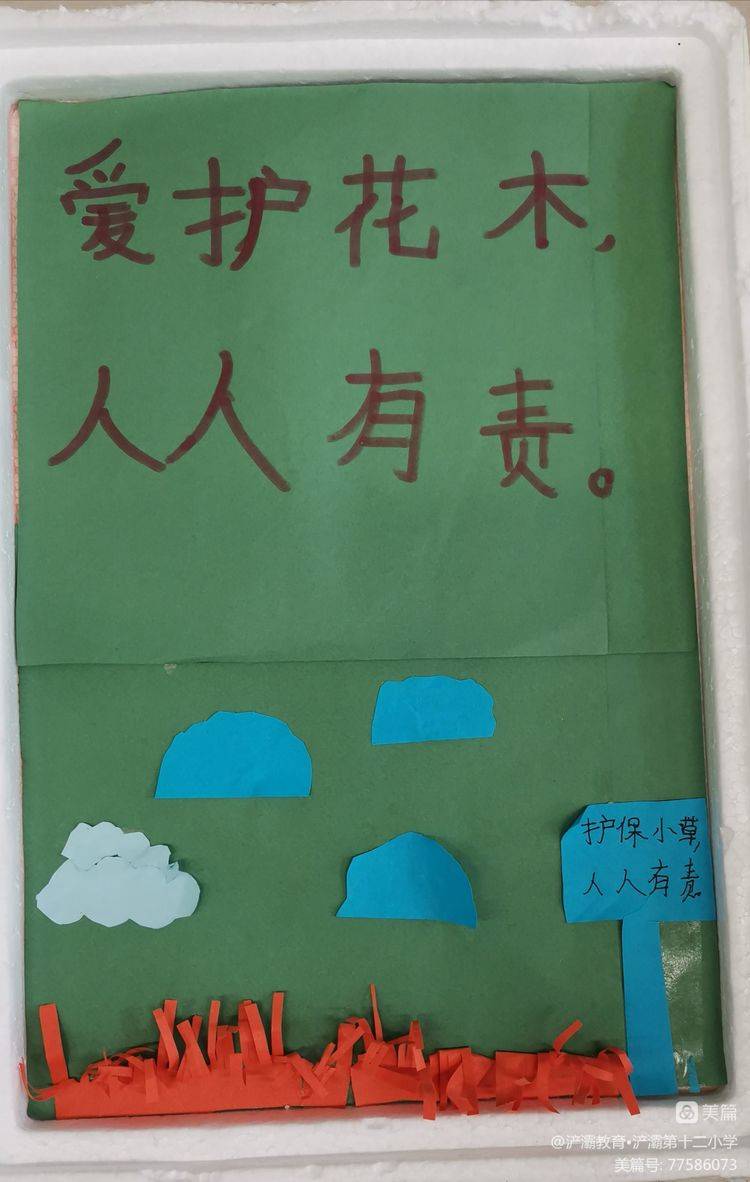 爱护花木,
人人有责。
护保小草,
人人有责
美篇
@浐灞教育•浐灞第十二小学
美篇号: 77586073